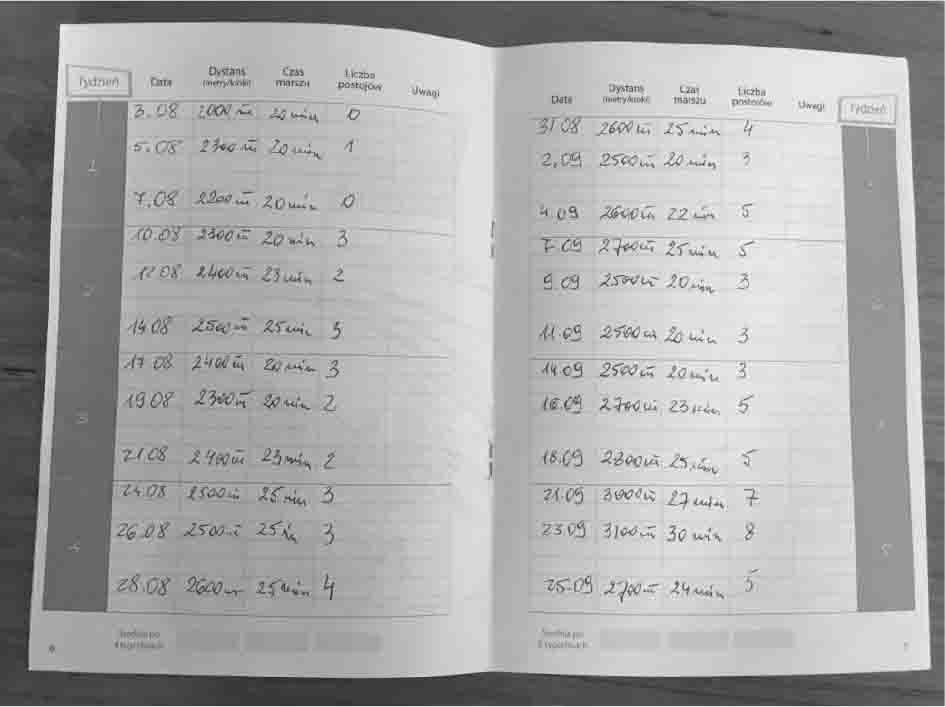 Tydzień Data Dystans (metry/kroki) Czas marszu Liczba postojów Uwagi
3.08 2000 m 20 min 0
1 5.08 2300 m 20 min 1
7.08 2200 m 20 min 0
10.08 2300 m 20 min 3
12.08 2400 m 23 min 2
14.08 2500 m 25 min 3
17.08 2400 m 20 min 3
3 19.08 2300 m 20 min 2
21.08 2400 m 23 min 2
24.08 2500 m 25 min 3
4 26.08 2500 m 25 3
28.08 2600 m 25 min 4
Średnia po
4 tygodniach
6
Data Dystans (metry/kroki) Czas marszu Liczba postojów Uwagi Tydzień
31.08 2600 m 25 min 4
2.09 2500 m 20 min 3
4.09 2600 m 22 min 5
7.09 2700 m 25 min 5
9.09 2500 m 20 min 3
11.09 2500 m 20 min 3
14.09 2500 m 20 min 3
16.09 2700 m 23 min 5
18.09 2800 m 25 min 5
21.09 3000 m 27 min 7
23.09 3100 m 30 min 8
25.09 2700 m 24 min 5
Średnia po
8 tygodniach
7